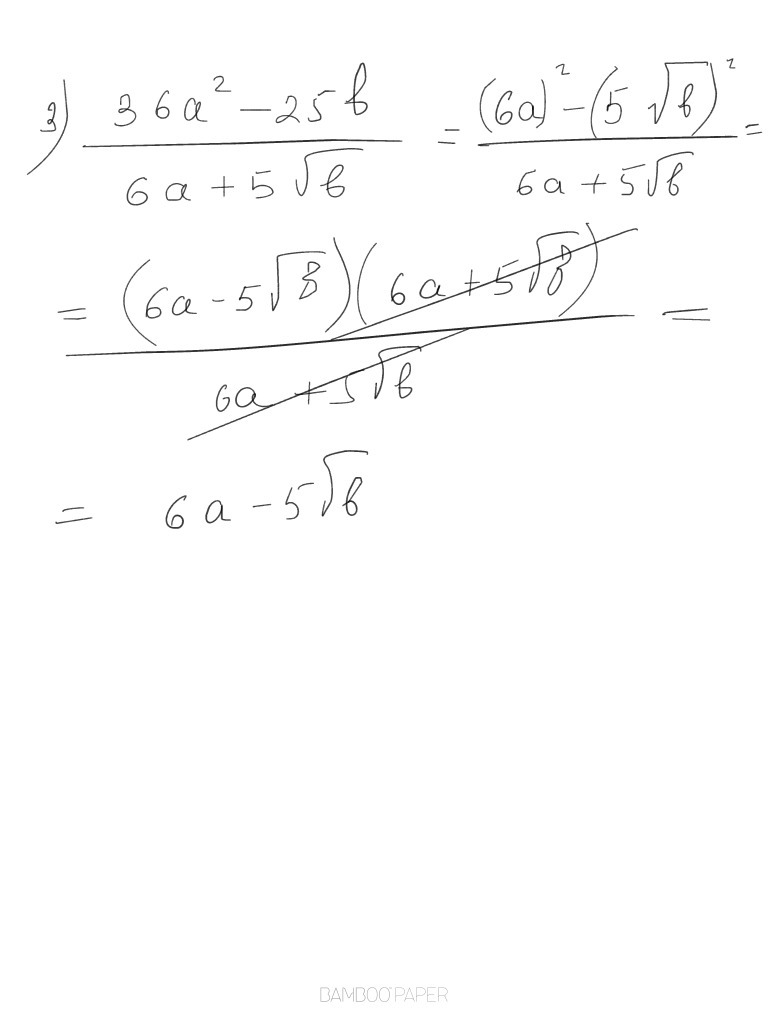 3) (36a² - 25b)/(6a + 5√b) = ((6a)² - (5√b)²)/(6a + 5√b) =
= ((6a - 5√b)(6a + 5√b))/(6a + 5√b) =
= 6a - 5√b
BAMBOO PAPER